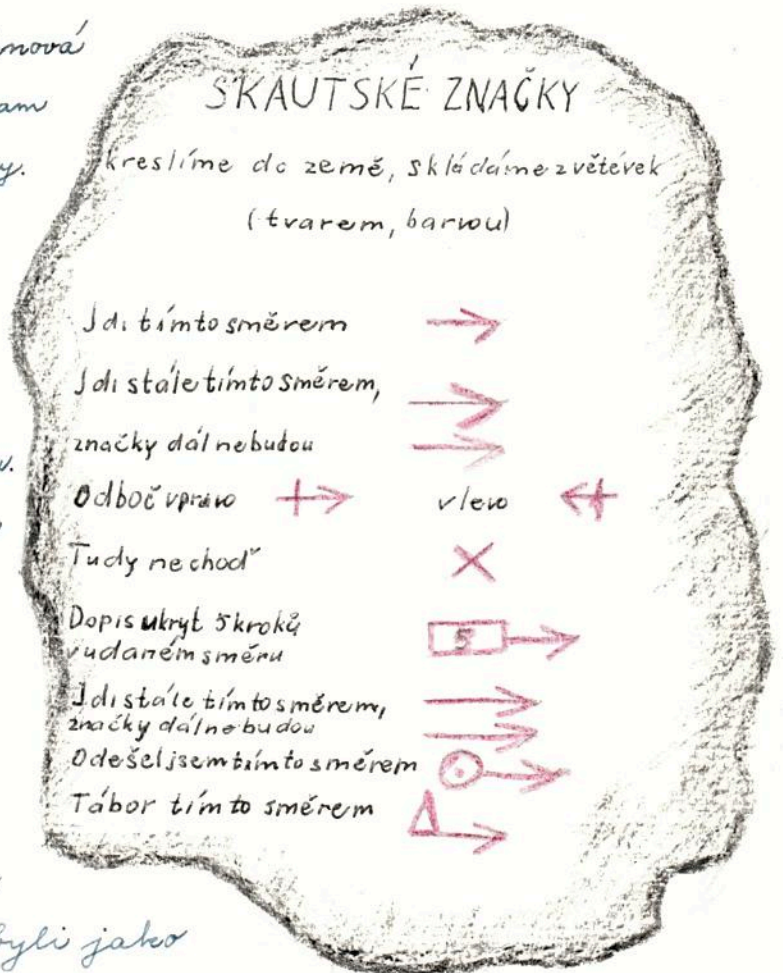 nová
am
y.
v.
byli jako
SKAUTSKÉ ZNAČKY
kreslíme do země, skládáme z větévek
(tvarem, barvou)
Jdi tímto směrem
Jdi stále tímto směrem,
značky dál nebudou
Odboč vpravo vlevo
Tudy nechoď
Dopis ukryt 5 kroků
v udaném směru
5
Jdi stále tímto směrem,
značky dál nebudou
Odešel jsem tímto směrem
Tábor tímto směrem